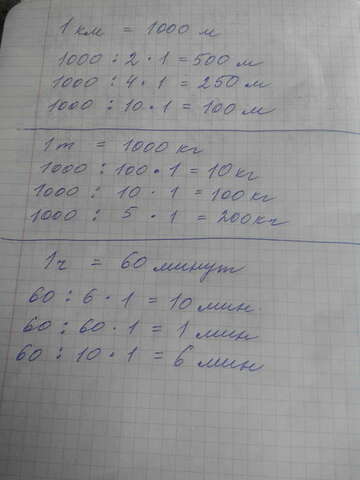 1 км = 1000 м
1000 : 2 · 1 = 500 м
1000 : 4 · 1 = 250 м
1000 : 10 · 1 = 100 м
1 т = 1000 кг
1000 : 100 · 1 = 10 кг
1000 : 10 · 1 = 100 кг
1000 : 5 · 1 = 200 кг
1 ч = 60 минут
60 : 6 · 1 = 10 мин.
60 : 60 · 1 = 1 мин
60 : 10 · 1 = 6 мин